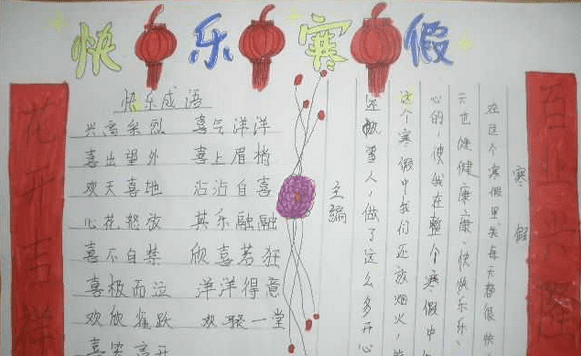 快乐寒假
快乐成语
兴高采烈 喜气洋洋
喜出望外 喜上眉梢
欢天喜地 沾沾自喜
心花怒放 其乐融融
喜不自禁 欣喜若狂
喜极而泣 洋洋得意
欢欣雀跃 欢聚一堂
喜笑
花开吉祥
主编
寒假
在这个寒假里我每天都很快
天也健健康康、快快乐乐、
心的，使我在整个寒假中
这个寒假中我们还放烟火，
还 雪人，做了这么多开心
百